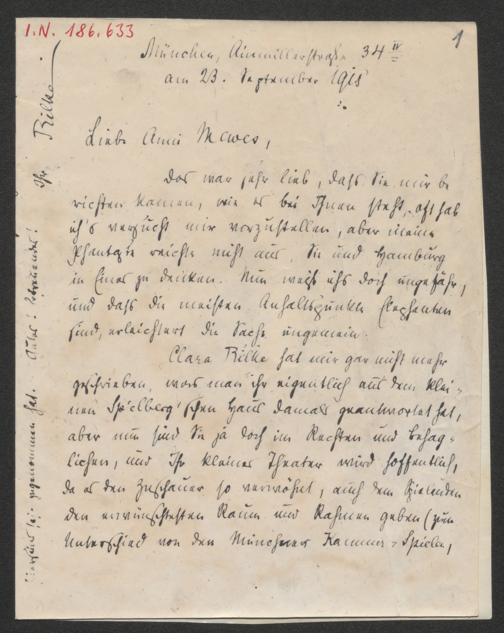 I.N. 186.633
1
München, Ainmillerstraße 34 IV
am 23. September 1918
Liebe Anni Mewes,
Das war sehr lieb, daß Sie mir be
richten kamen, wie es bei Ihnen steht, oft hab
ich's versucht mir vorzustellen, aber meine
Phantasie reichte nicht aus, Sie und Hamburg
in Eines zu denken. Nun weiß ichs doch ungefähr,
und daß die meisten Anhaltspunkte Elephanten
sind, erleichtert die Sache ungemein.
Clara Rilke hat mir gar nicht mehr
geschrieben, was man ihr eigentlich aus dem klei-
nen Spielberg'schen Haus damals geantwortet hat,
aber nun sind Sie ja doch im Rechten und Behag-
lichen, und Ihr kleines Theater wird hoffentlich,
da es den Zuschauer so verwöhnt, auch dem Spielenden
den erwünschtesten Raum und Rahmen geben (zum
Unterschied von den Münchner Kammer-Spielen,
genommen hat. Gutes! Ihr Rilke